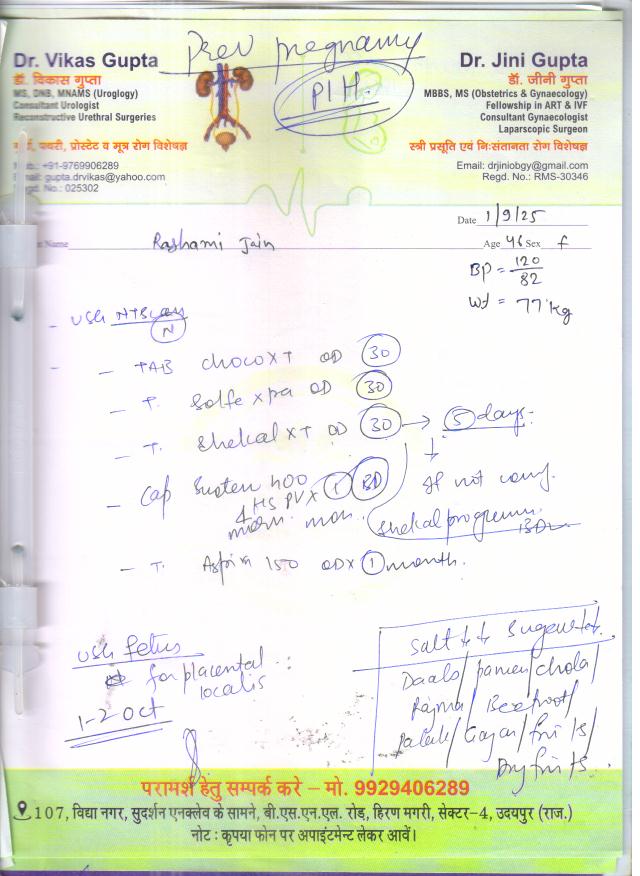 Prev pregnancy
PIH.
Dr. Vikas Gupta
डॉ. विकास गुप्ता
MS, DNB, MNAMS (Uroglogy)
Consultant Urologist
Reconstructive Urethral Surgeries
पथरी, प्रोस्टेट व मूत्र रोग विशेषज्ञ
Mob.: +91-9769906289
Email: gupta.drvikas@yahoo.com
Regd. No.: 025302
Dr. Jini Gupta
डॉ. जीनी गुप्ता
MBBS, MS (Obstetrics & Gynaecology)
Fellowship in ART & IVF
Consultant Gynaecologist
Laparscopic Surgeon
स्त्री प्रसूति एवं निःसंतानता रोग विशेषज्ञ
Email: drjiniobgy@gmail.com
Regd. No.: RMS-30346
Date 1/9/25
Name Rashami Jain
Age 46 Sex f
BP = 120/82
Wt = 77 kg
- USG NT Scan
N
- TAB choco x T OD 30
- T. Solfe xpa OD 30
- T. Shekal x T OD 30 → 5 days
If not
- Cap Susten 400
1 HS PV x 1 BD
Shekal
- T. Aspirin 150 OD x 1 month.
USG fetus
for placental
localis
1-2 Oct
Salt ↓↓
Daals/paneer/chola/
Rajma/Beetroot/
Palak/Gajar/fruits/
Dry fruits
परामर्श हेतु सम्पर्क करे – मो. 9929406289
107, विद्या नगर, सुदर्शन एनक्लेव के सामने, बी.एस.एन.एल. रोड, हिरण मगरी, सेक्टर-4, उदयपुर (राज.)
नोट : कृपया फोन पर अपाइंटमेन्ट लेकर आवें।